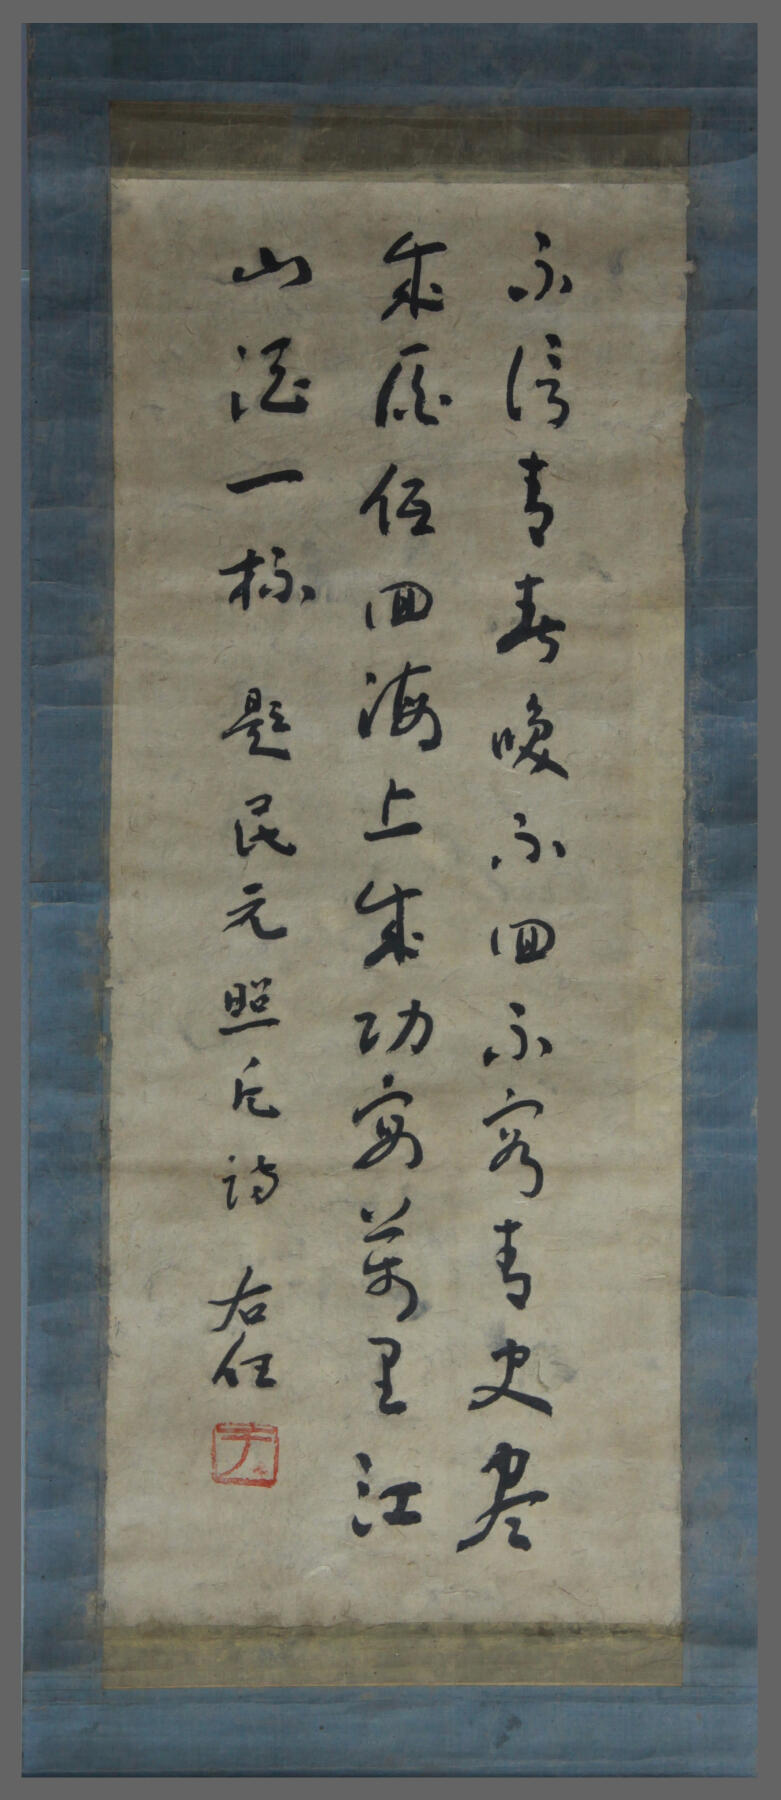 不信青春喚不回不容青史盡
成灰低回海上成功宴萬里江
山酒一杯 題民元照片詩 右任